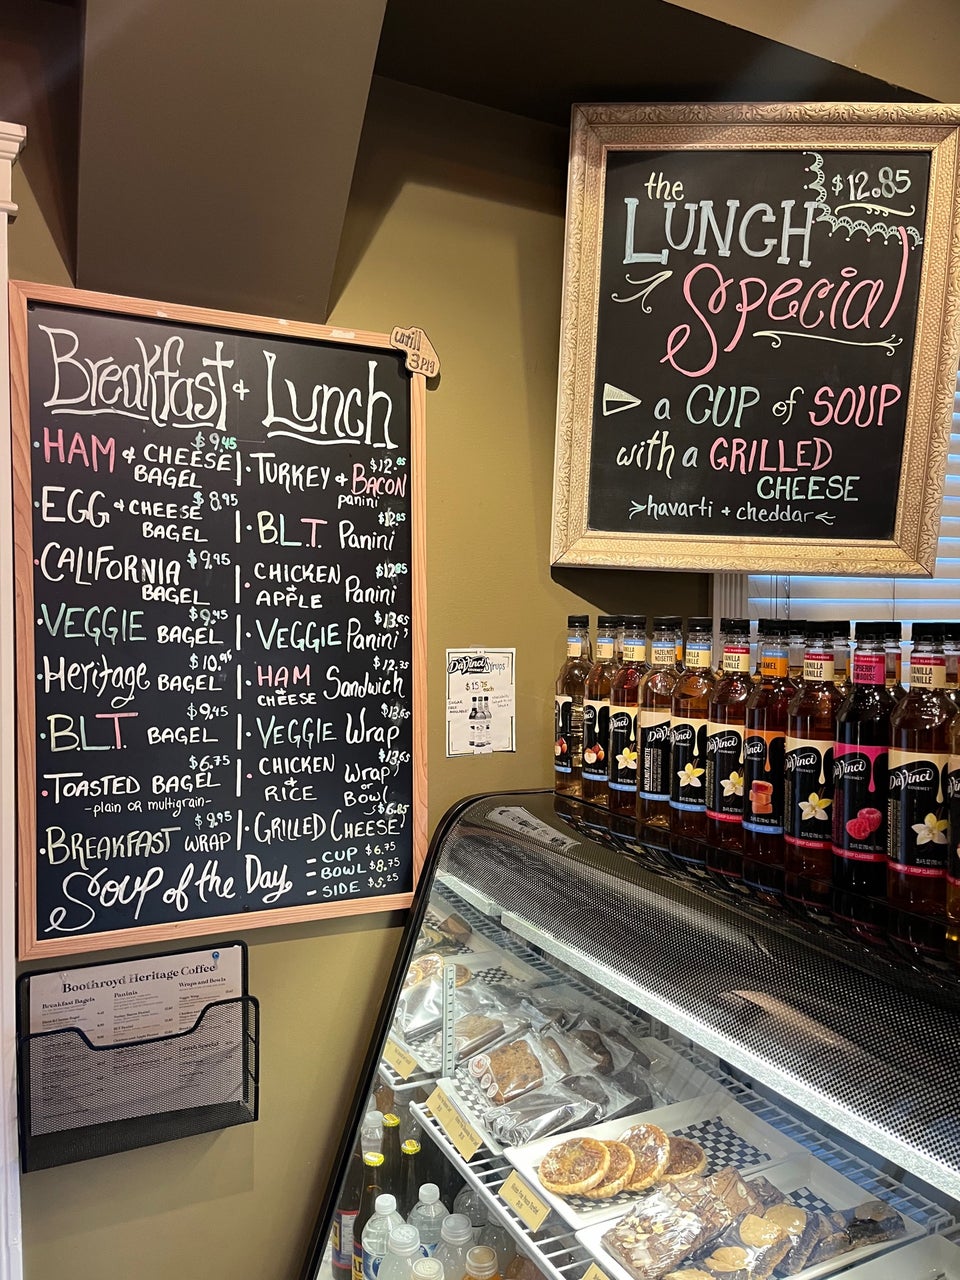 until
3PM
Breakfast + Lunch
• HAM & CHEESE BAGEL $9.45
• EGG + CHEESE BAGEL $8.95
• CALIFORNIA BAGEL $9.95
• VEGGIE BAGEL $9.45
• Heritage BAGEL $10.95
• B.L.T. BAGEL $9.45
• TOASTED BAGEL $6.75
-plain OR multigrain-
• BREAKFAST WRAP $9.95
• TURKEY + BACON panini
• B.L.T. Panini $12.85
• CHICKEN + APPLE Panini $12.85
• VEGGIE Panini $13.65
• HAM & CHEESE Sandwich $12.35
• VEGGIE Wrap $13.65
• CHICKEN & RICE Wrap or Bowl $13.65
• GRILLED CHEESE $6.85
Soup of the Day
- CUP $6.75
- BOWL $8.75
- SIDE $5.25
the
LUNCH
$12.85
Special
a CUP of SOUP
with a GRILLED
CHEESE
havarti + cheddar
DaVinci Syrups
$15.75
each
Boothroyd Heritage Coffee
Breakfast Bagels
Paninis
Wraps and Bowls
DaVinci
GOURMET
VANILLA
HAZELNUT
NOISETTE